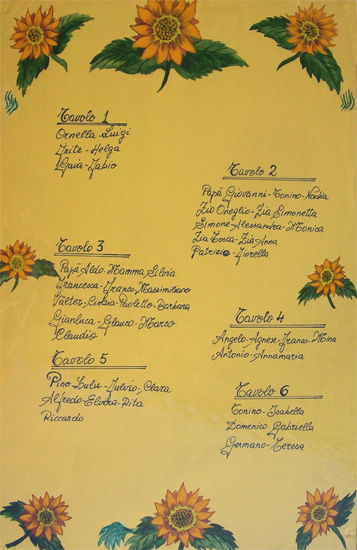 Tavolo 1
Ornella Luigi
Fritz - Helga
Gaia - Fabio
Tavolo 2
Papà Giovanni - Tonino - Nadia
Zio Oneglio - Zia Simonetta
Simone - Alessandra - Monica
Zia Tosca - Zia Anna
Patrizio Fiorella
Tavolo 3
Papà Aldo - Mamma Silvia
Francesca - Franco Massimiliano
Valter - Paoletto - Barbara
Gianluca - Glauco - Marco
Claudio
Tavolo 4
Angelo - Agnese - Franco
Antonio - Annamaria
Tavolo 5
Pino Lulu - Fulvio, Clara
Alfredo - Elvira - Rita
Riccardo
Tavolo 6
Tonino - Isabella
Domenico - Gabriella
Germano - Teresa